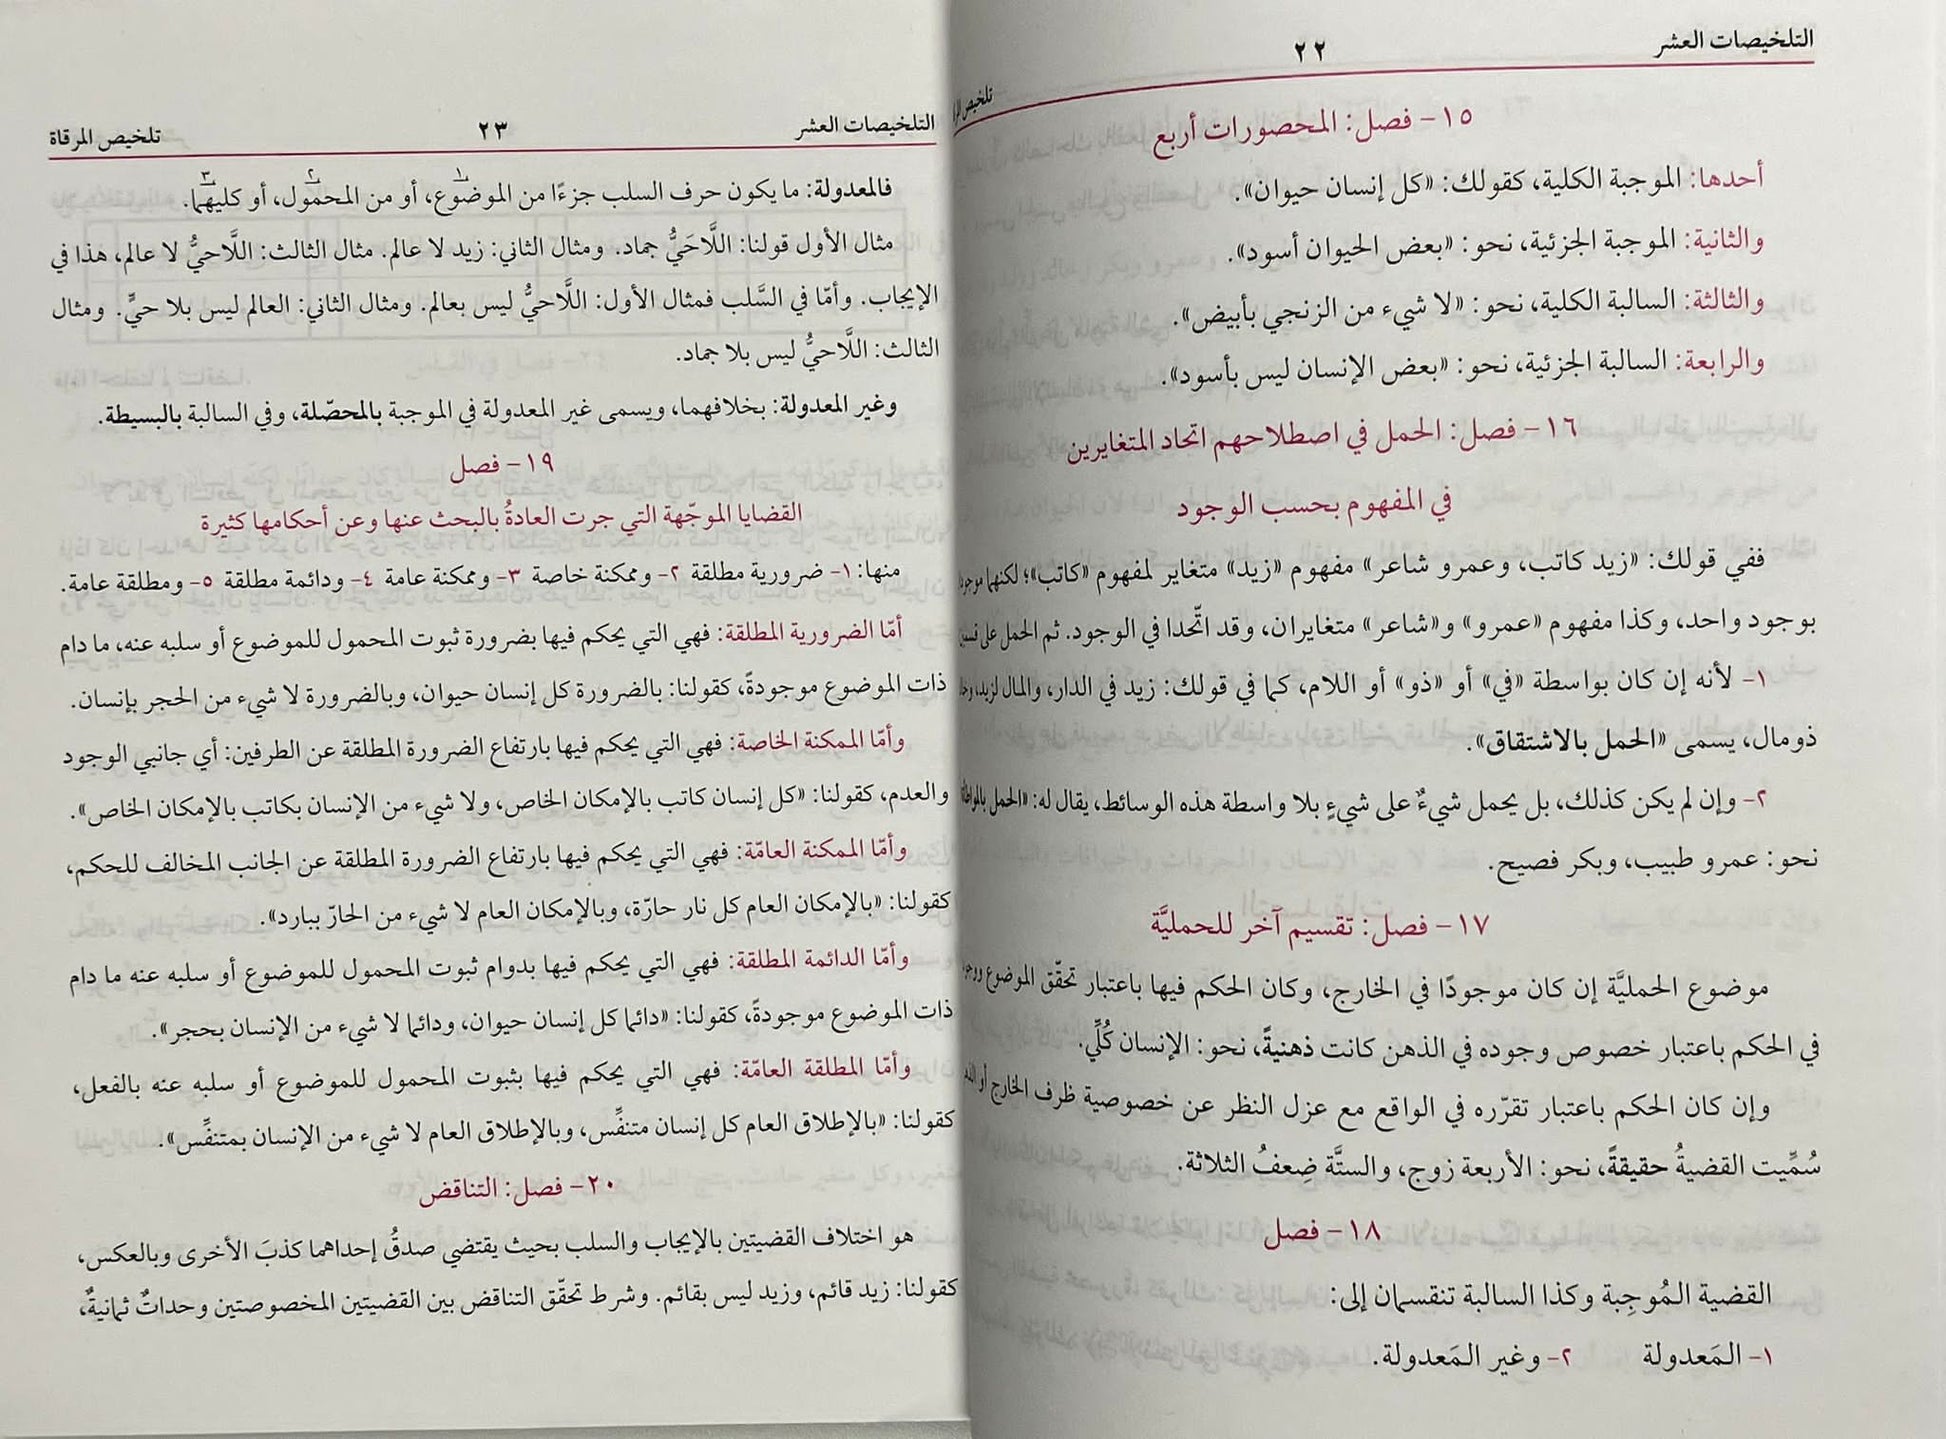 التلخيصات العشر
٢٢
تلخيص
١٥- فصل: المحصورات أربع
أحدها: الموجبة الكلية، كقولك: «كل إنسان حيوان».
والثانية: الموجبة الجزئية، نحو: «بعض الحيوان أسود».
والثالثة: السالبة الكلية، نحو: «لا شيء من الزنجي بأبيض».
والرابعة: السالبة الجزئية، نحو: «بعض الإنسان ليس بأسود».
١٦- فصل: الحمل في اصطلاحهم اتحاد المتغايرين
في المفهوم بحسب الوجود
ففي قولك: «زيد كاتب، وعمرو شاعر» مفهوم «زيد» متغاير لمفهوم «كاتب»؛ لكنهما
بوجود واحد، وكذا مفهوم «عمرو» و«شاعر» متغايران، وقد اتّحدا في الوجود. ثم الحمل على
١- لأنه إن كان بواسطة «في» أو «ذو» أو اللام، كما في قولك: زيد في الدار، والمال لزيد،
ذومال، يسمى «الحمل بالاشتقاق».
٢- وإن لم يكن كذلك، بل يحمل شيءٌ على شيءٍ بلا واسطة هذه الوسائط، يقال له: «الحمل
نحو: عمرو طبيب، وبكر فصيح.
١٧- فصل: تقسيم آخر للحمليَّة
موضوع الحمليَّة إن كان موجودًا في الخارج، وكان الحكم فيها باعتبار تحقّق الموضوع
في الحكم باعتبار خصوص وجوده في الذهن كانت ذهنيةً، نحو: الإنسان كُلِّي.
وإن كان الحكم باعتبار تقرّره في الواقع مع عزل النظر عن خصوصية ظرف الخارج أو
سُمِّيت القضيةُ حقيقةً، نحو: الأربعة زوج، والستَّة ضِعفُ الثلاثة.
١٨- فصل
القضية المُوجِبة وكذا السالبة تنقسمان إلى:
١- المَعدولة ٢- وغير المَعدولة.
التلخيصات العشر
٢٣
تلخيص المرقاة
فالمعدولة: ما يكون حرف السلب جزءًا من الموضوع، أو من المحمول، أو كليهما.
١ ٢ ٣
مثال الأول قولنا: اللَّاحَيُّ جماد. ومثال الثاني: زيد لا عالم. مثال الثالث: اللَّاحيُّ لا عالم، هذا في
الإيجاب. وأمّا في السَّلب فمثال الأول: اللَّاحيُّ ليس بعالم. ومثال الثاني: العالم ليس بلا حيٍّ. ومثال
الثالث: اللَّاحيُّ ليس بلا جماد.
وغير المعدولة: بخلافهما، ويسمى غير المعدولة في الموجبة بالمحصّلة، وفي السالبة بالبسيطة.
١٩- فصل
القضايا الموجّهة التي جرت العادةُ بالبحث عنها وعن أحكامها كثيرة
منها: ١- ضرورية مطلقة ٢- وممكنة خاصة ٣- وممكنة عامة ٤- ودائمة مطلقة ٥- ومطلقة عامة.
أمّا الضرورية المطلقة: فهي التي يحكم فيها بضرورة ثبوت المحمول للموضوع أو سلبه عنه، ما دام
ذات الموضوع موجودةً، كقولنا: بالضرورة كل إنسان حيوان، وبالضرورة لا شيء من الحجر بإنسان.
وأمّا الممكنة الخاصة: فهي التي يحكم فيها بارتفاع الضرورة المطلقة عن الطرفين: أي جانبي الوجود
والعدم، كقولنا: «كل إنسان كاتب بالإمكان الخاص، ولا شيء من الإنسان بكاتب بالإمكان الخاص».
وأمّا الممكنة العامّة: فهي التي يحكم فيها بارتفاع الضرورة المطلقة عن الجانب المخالف للحكم،
كقولنا: «بالإمكان العام كل نار حارّة، وبالإمكان العام لا شيء من الحارّ ببارد».
وأمّا الدائمة المطلقة: فهي التي يحكم فيها بدوام ثبوت المحمول للموضوع أو سلبه عنه ما دام
ذات الموضوع موجودةً، كقولنا: «دائما كل إنسان حيوان، ودائما لا شيء من الإنسان بحجر».
وأمّا المطلقة العامّة: فهي التي يحكم فيها بثبوت المحمول للموضوع أو سلبه عنه بالفعل،
كقولنا: «بالإطلاق العام كل إنسان متنفِّس، وبالإطلاق العام لا شيء من الإنسان بمتنفِّس».
٢٠- فصل: التناقض
هو اختلاف القضيتين بالإيجاب والسلب بحيث يقتضي صدقُ إحداهما كذبَ الأخرى وبالعكس،
كقولنا: زيد قائم، وزيد ليس بقائم. وشرط تحقّق التناقض بين القضيتين المخصوصتين وحداتٌ ثمانيةٌ،